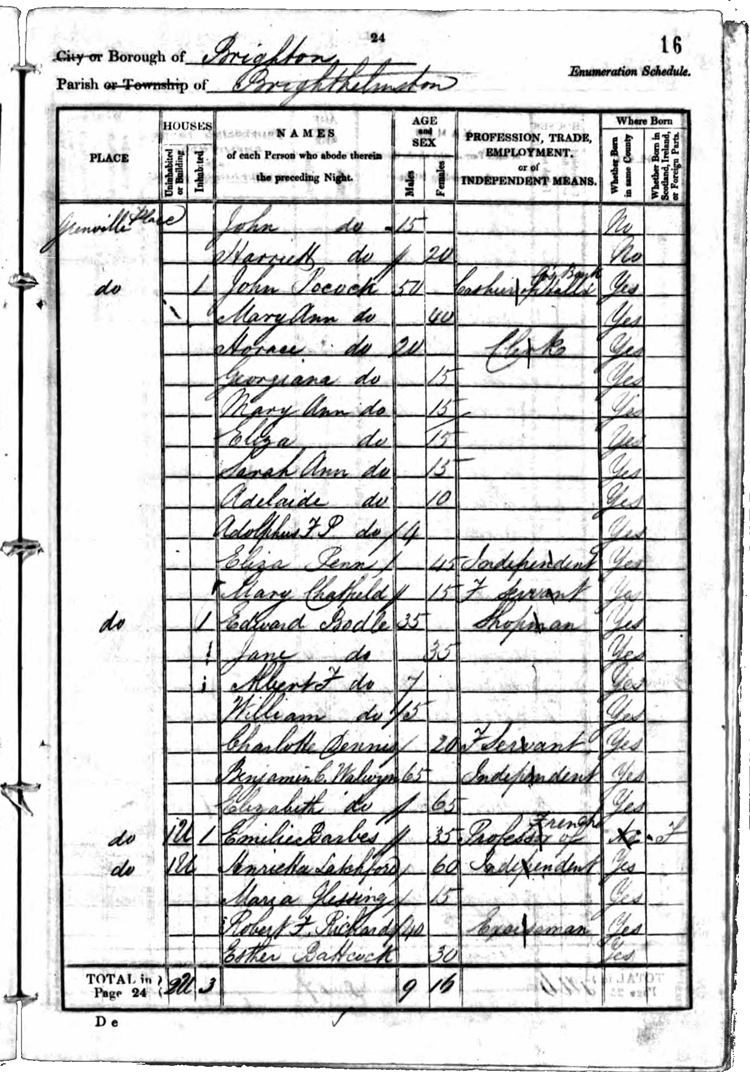 24
16
City or Borough of Brighton
Enumeration Schedule.
Parish or Township of Brighthelmston
PLACE
HOUSES
Uninhabited or Building
Inhabited
NAMES
of each Person who abode therein
the preceding Night.
AGE
and
SEX
Males
Females
PROFESSION, TRADE,
EMPLOYMENT,
or of
INDEPENDENT MEANS.
Where Born
Whether Born in same County
Whether Born in Scotland, Ireland, or Foreign Parts.
Grenville Place John do 15 No
Harriett do 20 No
do 1 John Pocock 50 Cashier Yes
Mary Ann do 40 Yes
Horace do 20 Clerk Yes
Georgiana do 15 Yes
Mary Ann do 15 Yes
Eliza do 15 Yes
Sarah Ann do 15 Yes
Adelaide do 10 Yes
Adolphus F.P. do 9 Yes
Eliza Penn 45 Independent Yes
Mary Chatfield 15 F Servant Yes
do 1 Edward Bodle 35 Shopman Yes
Jane do 35 Yes
Albert F do 7 Yes
William do 5 Yes
Charlotte Dennis 20 F Servant Yes
Benjamin C. Walwyn 65 Independent Yes
Elizabeth do 65 Yes
do 1U 1 Emilie Barbes 35 Professor of French F
do 1U Henrietta Latchford 60 Independent Yes
Maria 15 Yes
Robert F. Richards 40 Exciseman Yes
Esther Battcock 30 Yes
TOTAL in
Page 24 2U 3 9 16
D e